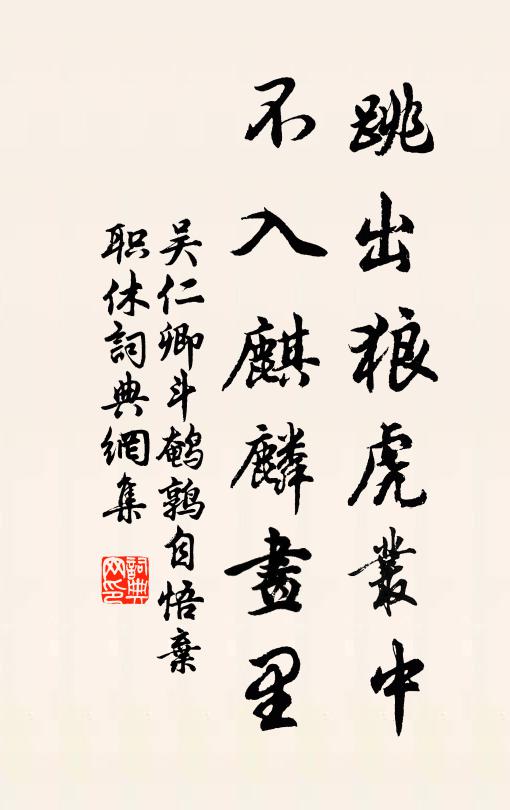 跳出狼虎叢中
不入麒麟畫里
吴仁卿斗鹌鹑自悟棄
职休詞典網集
詞典网印